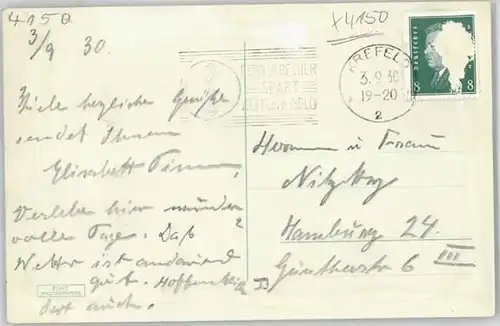 4150
x4150
3/9 30.
FERNSPRECHER
SPART
ZEIT und GELD
KREFELD
3.9.30
19-20
2
Deutsches
8 8
Viele herzliche Grüße
sendet Ihnen
Elisabeth
Verlebe hier wunder-
volle Tage. Das
Wetter ist andauernd
gut. Hoffentlich
dort auch.
Herrn u Frau
Hamburg 24.
Güntherstr 6 III